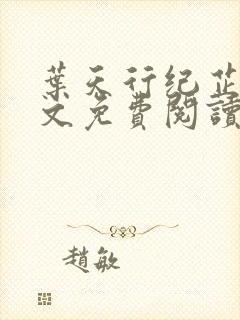 葉天行纪芷
文免費閱讀
趙敏